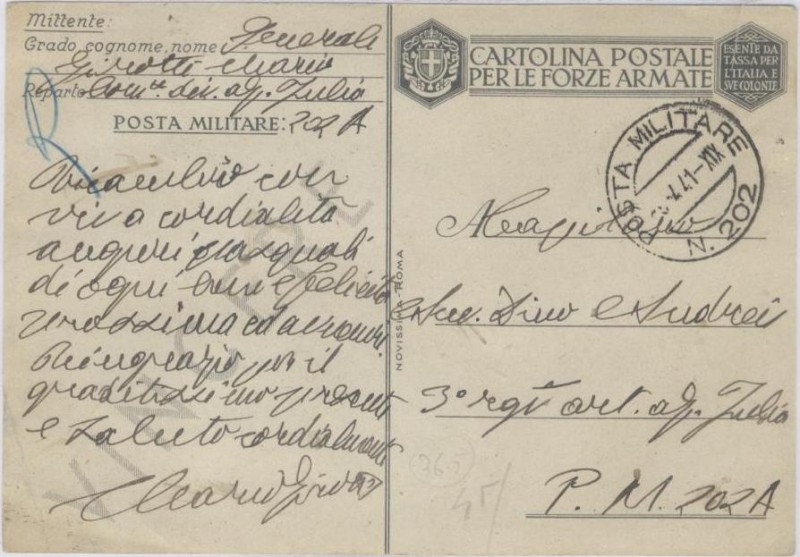 Mittente:
Grado, cognome, nome Generale
Girotti Mario
Reparto Com. div. alp. Julia
POSTA MILITARE: 202 A
Ricambio con
viva cordialità
auguri pasquali
di ogni bene e felicità
prossima ed avvenire.
Ringrazio per il
graditissimo
e saluto cordialmente
Mario Girotti
VINCERE
NOVISSIMA - ROMA
CARTOLINA POSTALE
PER LE FORZE ARMATE
ESENTE DA
TASSA PER
L'ITALIA E
SUE COLONIE
POSTA MILITARE
4.41-XIX
N. 202
Dino Andreis
3° rgt art. alp. Julia
P. M. 202 A
(365)
45/